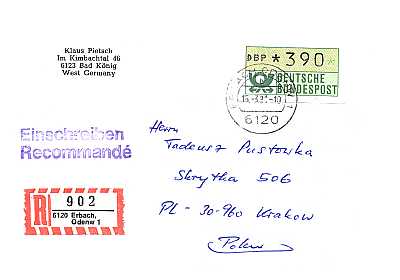 Klaus Pietsch
Im Kimbachtal 46
6123 Bad König
West Germany
DBP *390*
DEUTSCHE
BUNDESPOST
6120
Einschreiben
Recommandé
Herrn
Tadeusz Pustowka
Skrytka 506
PL - 30-960 Krakow
Polen
R
902
6120 Erbach,
Odenw 1